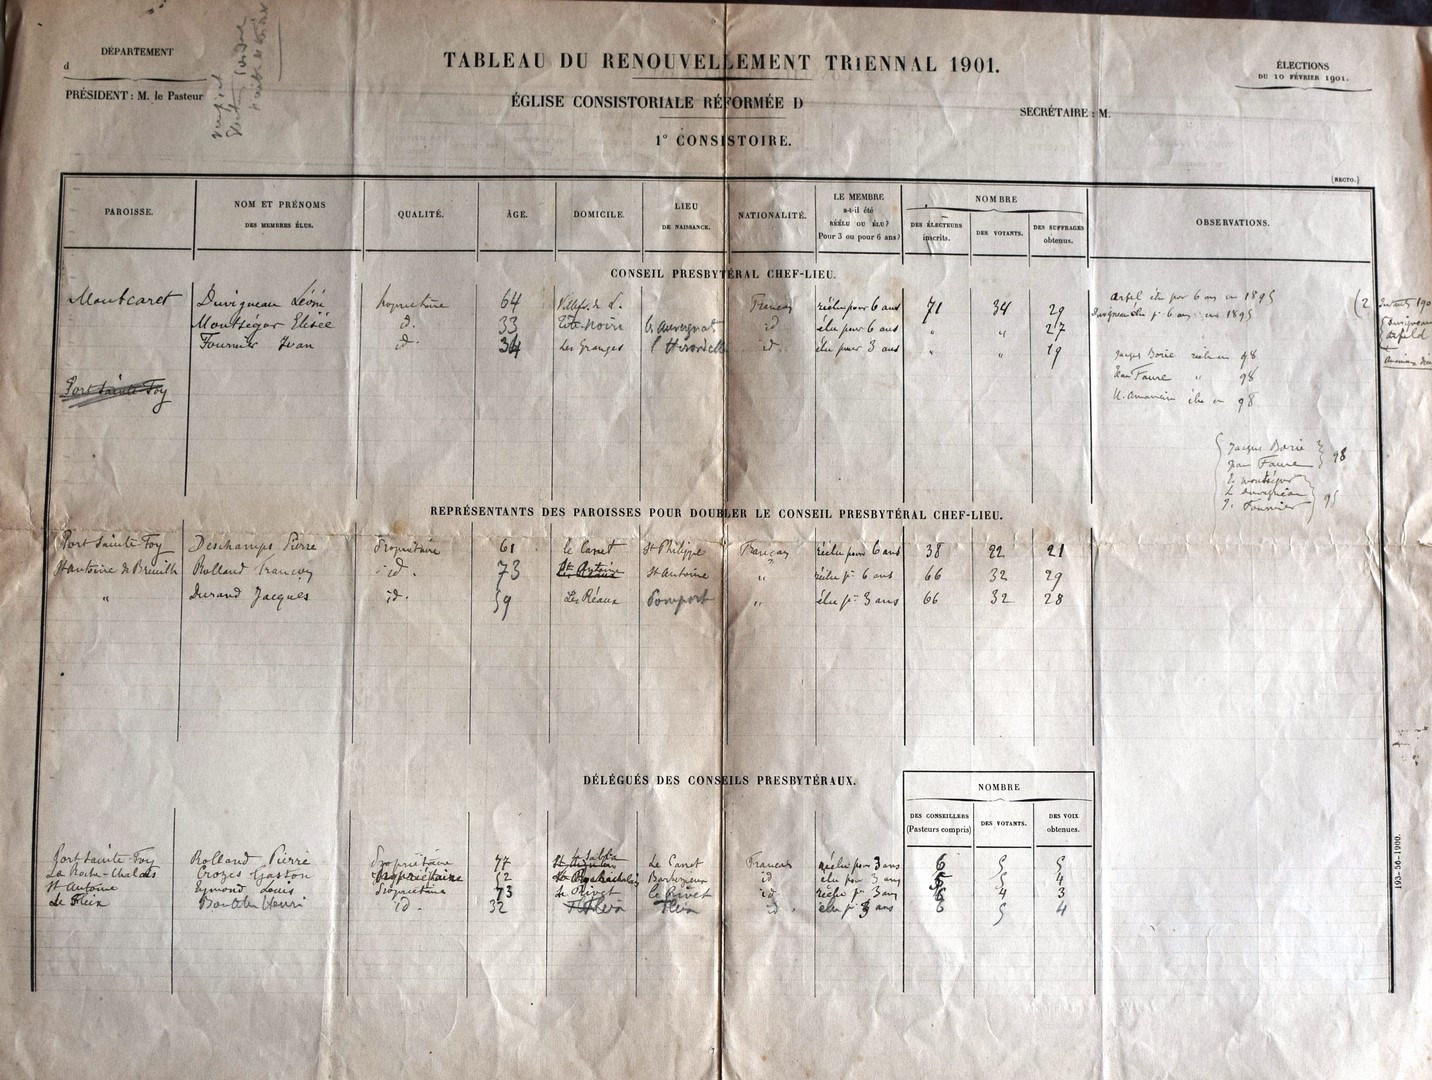 DÉPARTEMENT
d
PRÉSIDENT : M. le Pasteur
TABLEAU DU RENOUVELLEMENT TRIENNAL 1901.
ÉGLISE CONSISTORIALE RÉFORMÉE D
1° CONSISTOIRE.
ÉLECTIONS
DU 10 FÉVRIER 1901.
SECRÉTAIRE : M.
(RECTO.)
PAROISSE.
NOM ET PRÉNOMS
DES MEMBRES ÉLUS.
QUALITÉ.
ÂGE.
DOMICILE.
LIEU
DE NAISSANCE.
NATIONALITÉ.
LE MEMBRE
a-t-il été
RÉÉLU OU ÉLU?
Pour 3 ou pour 6 ans?
NOMBRE
DES ÉLECTEURS
inscrits.
DES VOTANTS.
DES SUFFRAGES
obtenus.
OBSERVATIONS.
CONSEIL PRESBYTÉRAL CHEF-LIEU.
Montcaret Duvigneau Propriétaire 64 Français réélu pour 6 ans 71 34 29
Montségur Elisée id. 33 id élu pour 6 ans " " 27
Fournier Ivan id. 34 Les Granges l'Hirondelle id. élu pour 3 ans " " 19
Port Sainte Foy
élu pr 6 ans en 1895
Duvigneau élu pr 6 ans en 1895
Jacques Borie réélu en 98
Jean Faure " 98
élu en 98
Jacques Borie
Jean Faure
98
E. Montségur
L. Duvigneau
I. Fournier
REPRÉSENTANTS DES PAROISSES POUR DOUBLER LE CONSEIL PRESBYTÉRAL CHEF-LIEU.
Port Sainte Foy Deschamps Pierre Propriétaire 61 le Canet St Philippe Français réélu pour 6 ans 38 22 21
St Antoine de Breuilh Rolland François id. 73 St Antoine " réélu pr 6 ans 66 32 29
" Durand Jacques id. 59 Les Réaux Pomport " élu pr 3 ans 66 32 28
DÉLÉGUÉS DES CONSEILS PRESBYTÉRAUX.
NOMBRE
DES CONSEILLERS
(Pasteurs compris)
DES VOTANTS.
DES VOIX
obtenues.
Port Sainte-Foy Rolland Pierre Propriétaire 77 Le Canet Français réélu pour 3 ans 6 5 5
La Roche-Chalais Crozes Gaston Propriétaire 52 id élu pr 3 ans 5 4
St Antoine Eymond Louis Propriétaire 73 le Rivet le Rivet id réélu pr 3 ans 4 3
Le Fleix Henri id. 32 Fleix id. élu pr 3 ans 6 5 4
193-56-1900.